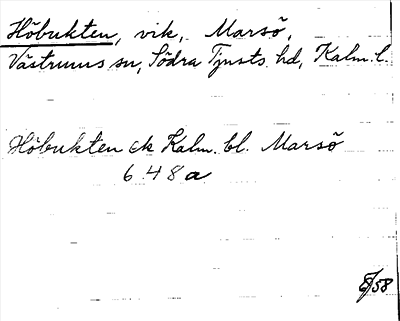 Höbukten, vik, Marsö,
Västrums sn, Södra Tjusts hd, Kalm. l.
Höbukten ek Kalm. bl. Marsö
6 4 8 a
8/58